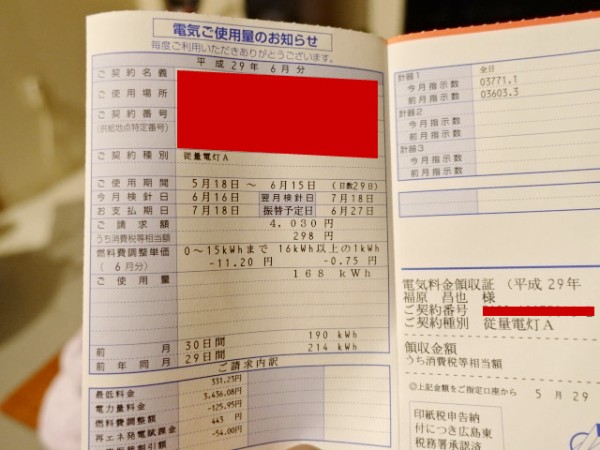 電気ご使用量のお知らせ
毎度ご利用いただきありがとうございます。
平成29年 6月分
ご契約名義
ご使用場所
ご契約番号
(供給地点特定番号)
ご契約種別 従量電灯A
ご使用期間 5月18日 ～ 6月15日 (日数29日)
今月検針日 6月16日 翌月検針日 7月18日
お支払期日 7月18日 振替予定日 6月27日
ご請求額 4,030円
うち消費税等相当額 298円
燃料費調整単価 0～15kWhまで 16kWh以上の1kWh
(6月分) -11.20 円 -0.75 円
ご使用量 168 kWh
前月 30日間 190 kWh
前年同月 29日間 214 kWh
ご請求内訳
最低料金 331.23円
電力量料金 3,436.08円
燃料費調整額 -125.95円
再エネ発電賦課金 443 円
-54.00円
計器1 全日
今月指示数 03771.1
前月指示数 03603.3
計器2
今月指示数
前月指示数
計器3
今月指示数
前月指示数
電気料金領収証 (平成 29年
福原 昌也 様
ご契約番号
ご契約種別 従量電灯A
領収金額
うち消費税等相当額
◎上記金額をご指定口座から 5月29
印紙税申告納
付につき広島東
税務署承認済